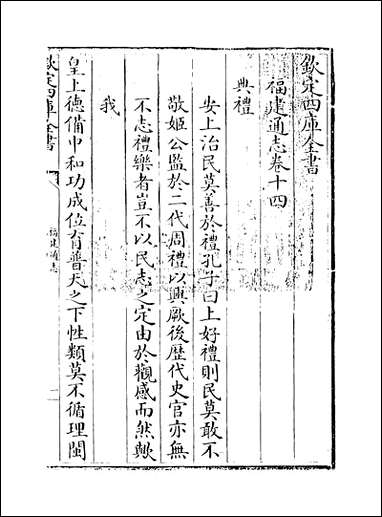 欽定四庫全書
福建通志卷十四
典禮
安上治民莫善於禮孔子曰上好禮則民莫敢不
敬姬公監於二代周禮以興厥後歴代史官亦無
不志禮樂者豈不以民志之定由於觀感而然歟
我
皇上德備中和功成位育普天之下性類莫不循理閩
欽定四庫全書
福建通志
一